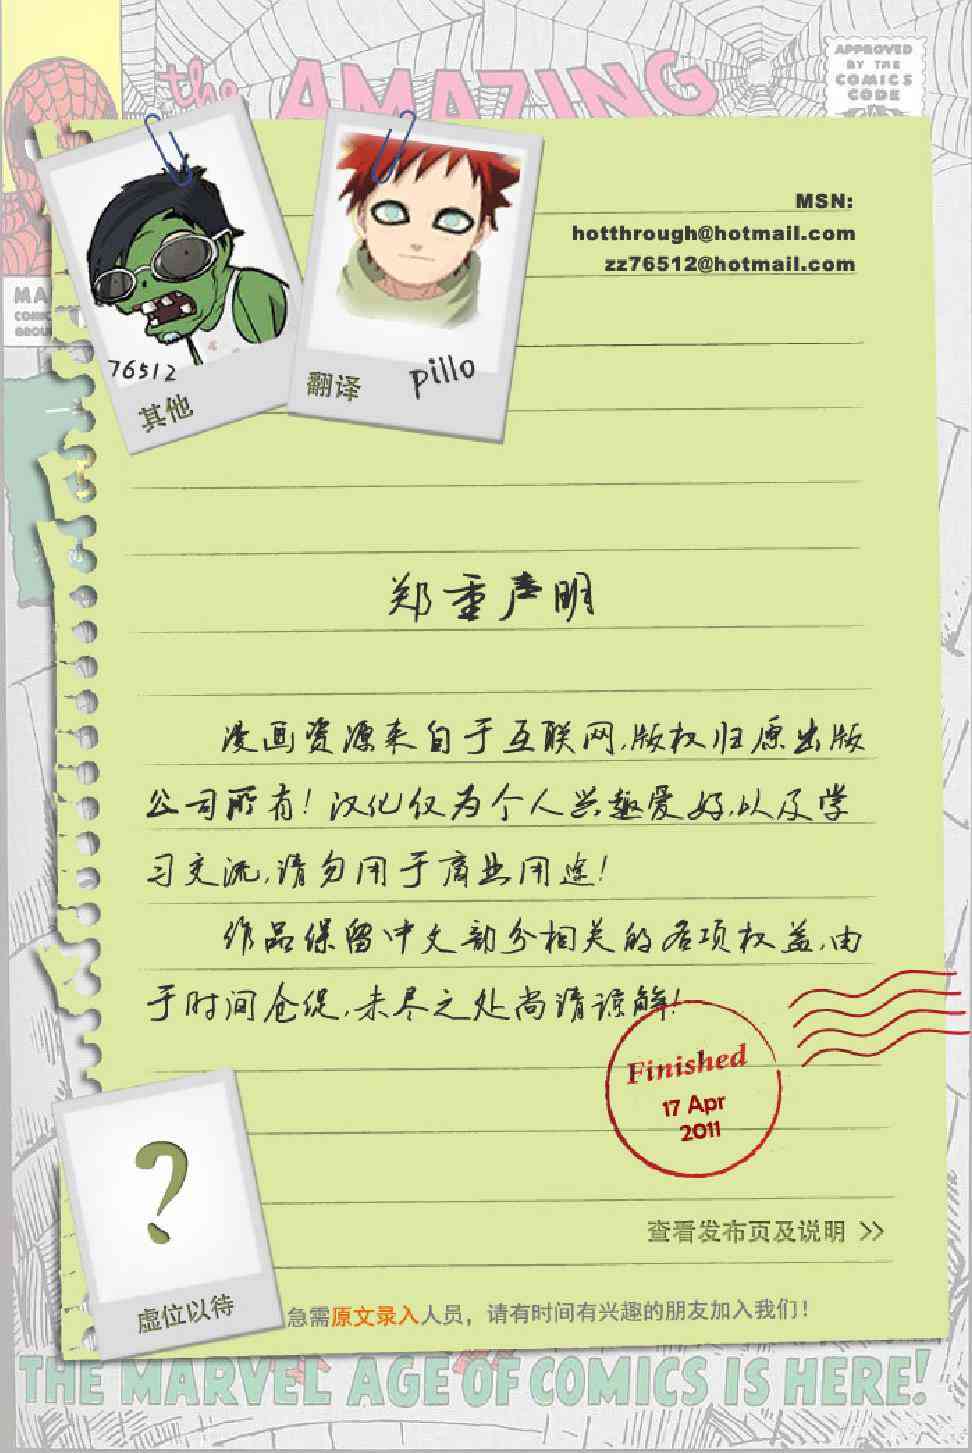 the AMAZING
APPROVED
BY THE
COMICS
CODE
MSN:
hotthrough@hotmail.com
zz76512@hotmail.com
MA
COMIC
GROU
76512
其他
翻译
pillo
郑重声明
漫画资源来自于互联网,版权归原出版
公司所有!汉化仅为个人兴趣爱好,以及学
习交流,请勿用于商业用途!
作品保留中文部分相关的各项权益,由
于时间仓促,未尽之处尚请谅解!
Finished
17 Apr
2011
?
虚位以待
查看发布页及说明 >>
急需原文录入人员，请有时间有兴趣的朋友加入我们！
THE MARVEL AGE OF COMICS IS HERE!